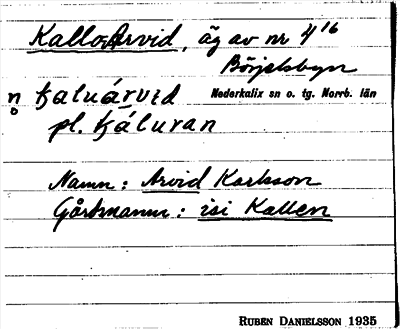 Kallo-Arvid, äg av nr 4¹⁶
Börjelsbyn
Nederkalix sn o. tg. Norrb. län
n ꞓaluárvıd
o
pl. ꞓáluran
Namn: Arvid Karlsson
Gårdsnamn: isi Kallen
RUBEN DANIELSSON 1935